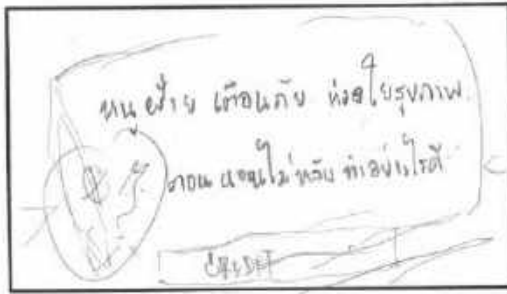 หนูฝ้าย เตือนภัย ห่วงใยสุขภาพ
ตอน นอนไม่หลับ ทำอย่างไรดี
CREDIT